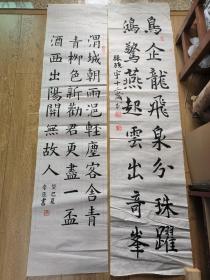 鳥企龍飛泉分珠躍
鴻驚燕起雲出奇峯
渭城朝雨浥輕塵客舍青
青柳色新勸君更盡一盃
酒西出陽關無故人
癸巳夏